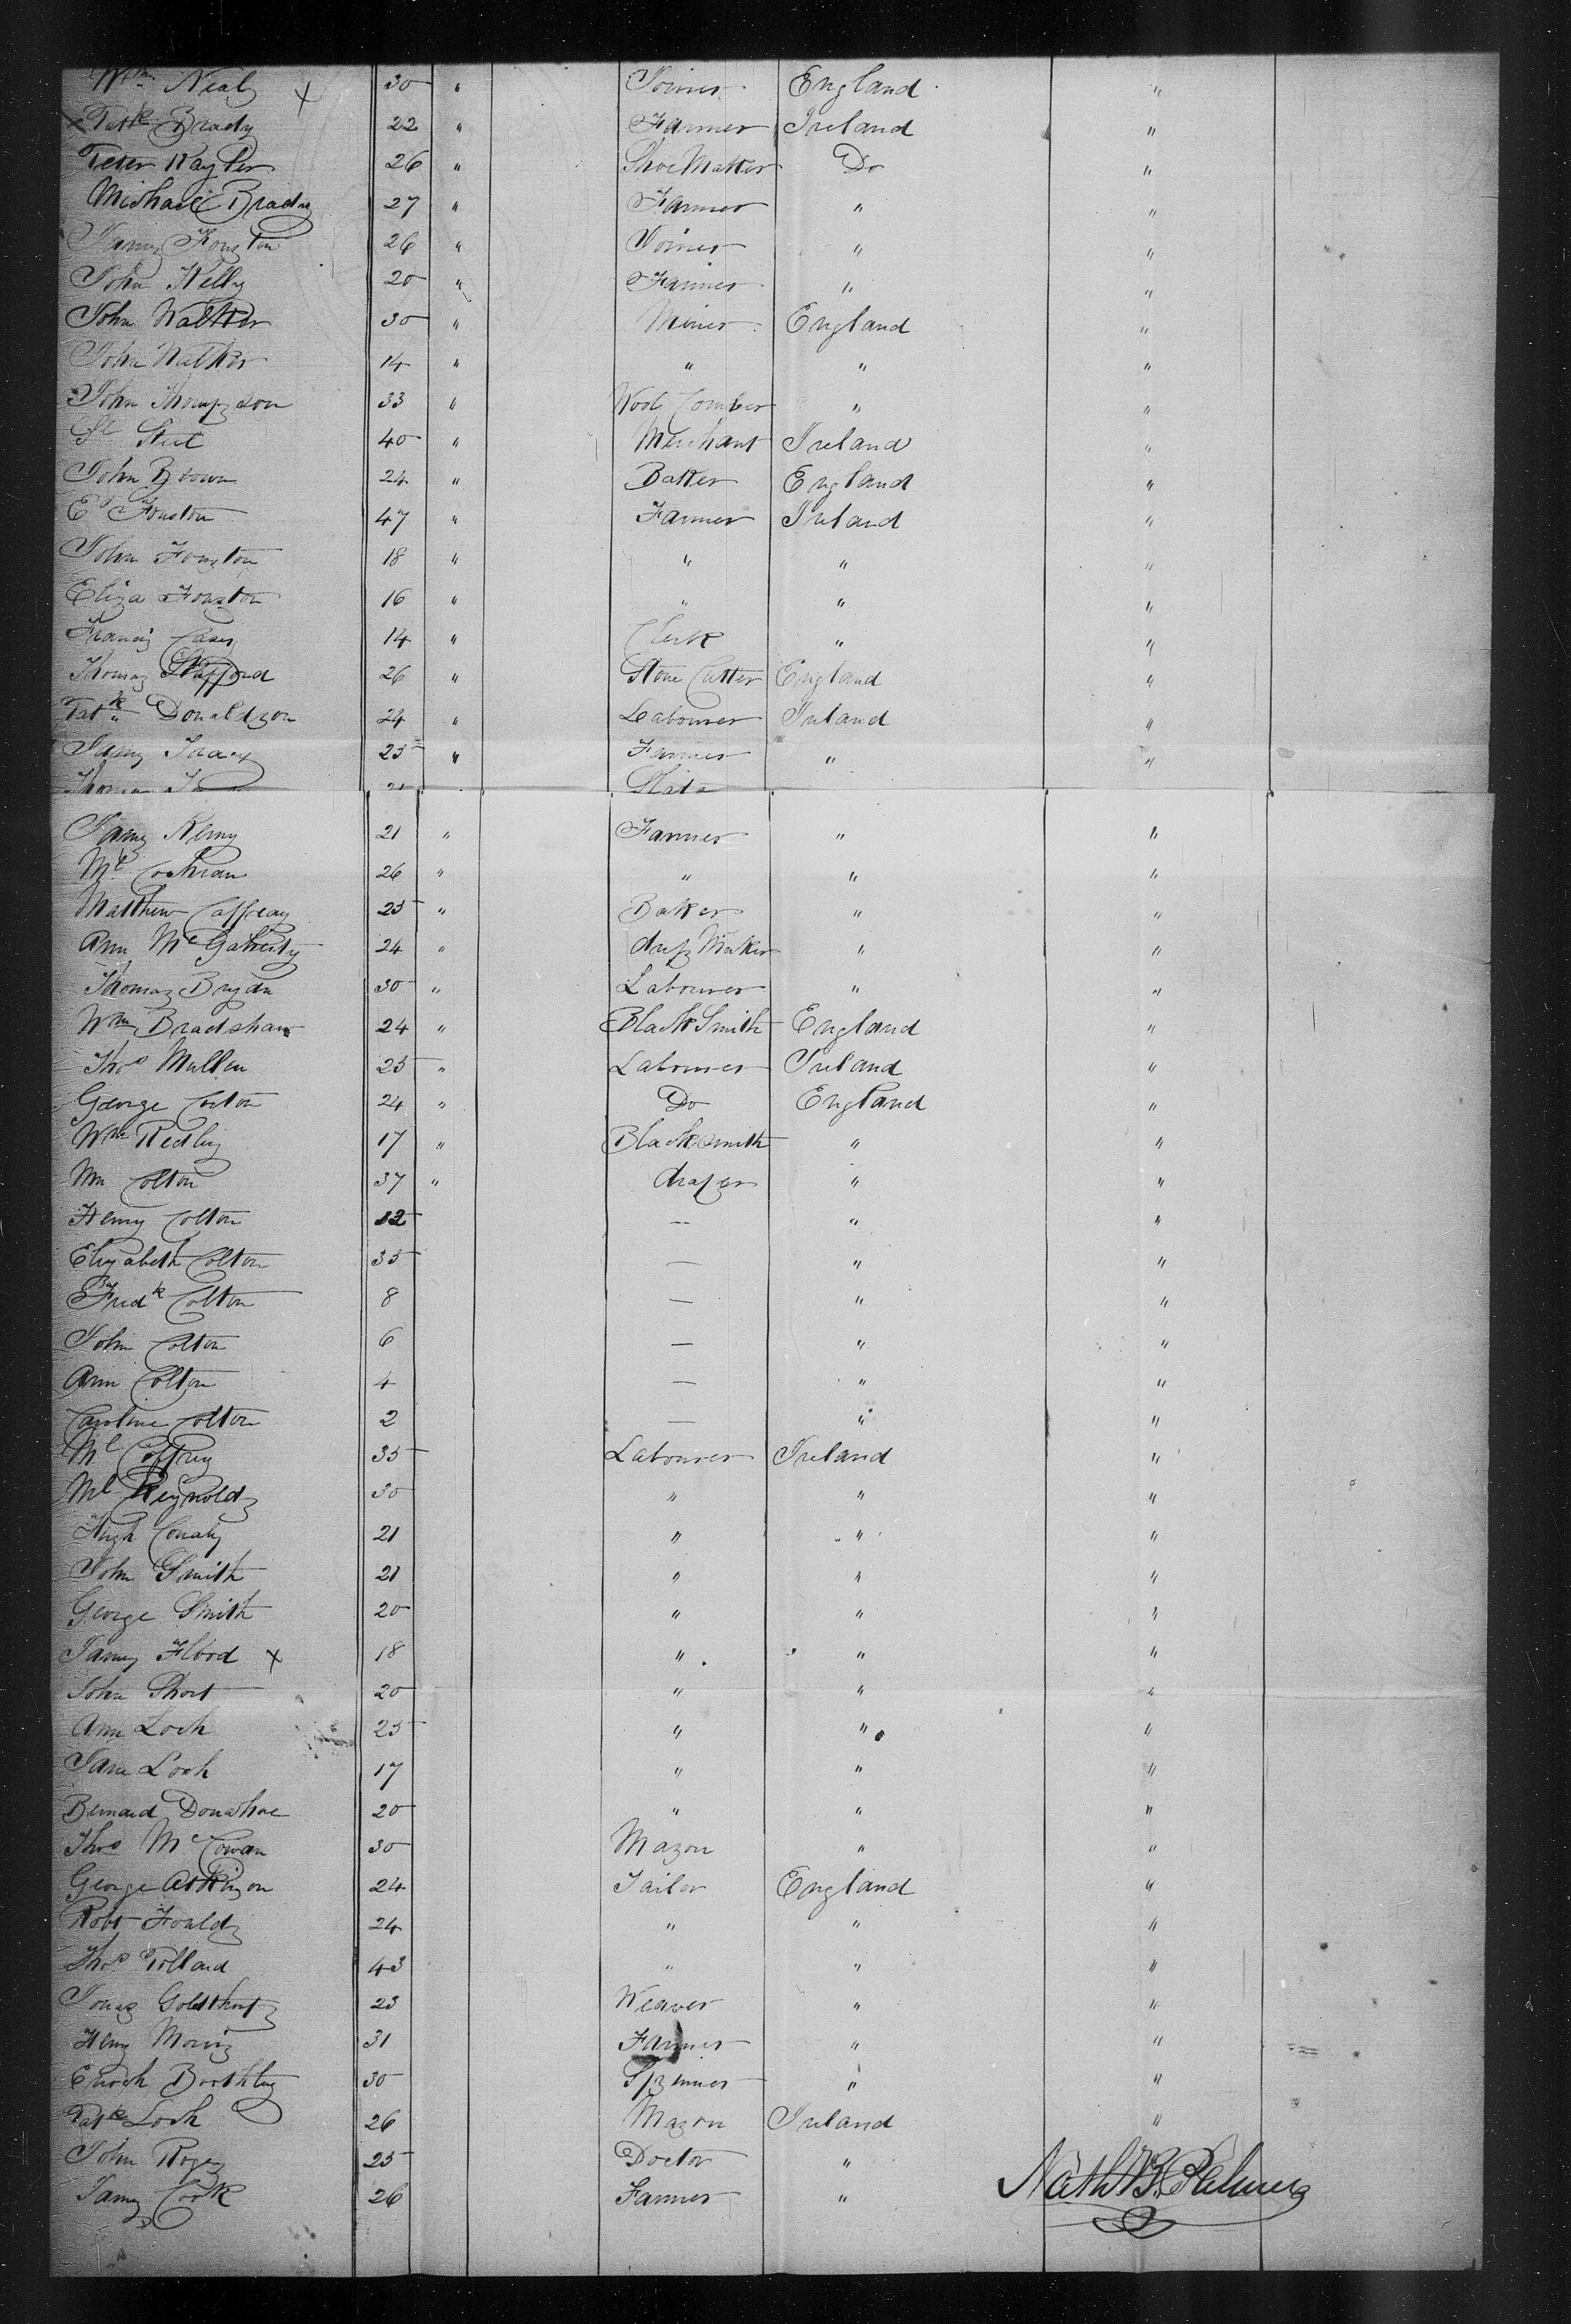 Wm Nealy × 30 " Joiner England "
× Patk Brady 22 " Farmer Ireland "
Peter 26 " Shoe Makker Do "
Michael Brady 27 " Farmer " "
James 26 " Joiner " "
John Kelly 20 " Farmer " "
John Walker 30 " Miner England "
John Walker 14 " " " "
John Thompson 33 " Wool Comber " "
40 " Merchant Ireland "
John Brown 24 " Baker England "
Ed Fouston 47 " Farmer Ireland "
John Fouston 18 " " " "
Eliza Fouston 16 " " " "
Francis Casey 14 " Clerk " "
Thomas Stafford 26 " Stone Cutter England "
Patk Donaldson 24 " Labourer Ireland "
James Tracy 25 " Farmer " "
Thomas
James Kerny 21 " Farmer " "
Ml Cochran 26 " " " "
Matthew Caffray 25 " Baker " "
Ann Mc 24 " dress Maker " "
Thomas Brydn 30 " Labourer " "
Wm Bradshaw 24 " Black Smith England "
Thos Mullen 25 " Labourer Ireland "
George 24 " Do England "
Wm Redley 17 " Blacksmith " "
Wm Colton 37 " draper " "
Henry Colton 12 — " "
Elizabeth Colton 35 — " "
Fredk Colton 8 — " "
John Colton 6 — " "
Ann Colton 4 — " "
Caroline Colton 2 — " "
Ml Caffrey 35 Labourer Ireland "
Ml Reynolds 30 " " "
Hugh 21 " " "
John Smith 21 " " "
George Smith 20 " " "
James Flood × 18 " " "
John Short 20 " " "
Ann Loch 25 " " "
Jane Loch 17 " " "
Bernard Donashoe 20 " " "
Thos McCowan 30 Mason " "
George Atkinson 24 Tailor England "
Robt Foulds 24 " " "
Thos Pollard 43 " " "
Jonas 23 Weaver " "
Henry Morris 31 Farmer " "
Enoch Boothby 30 Spinner " "
Patk Loch 26 Mason Ireland "
John Roges 25 Doctor "
James Cook 26 Farmer "
Nathl B. Palmer